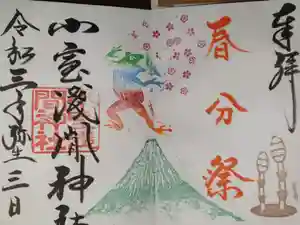 奉拝
春分祭
小室淺間神社
令和三年弥生三日